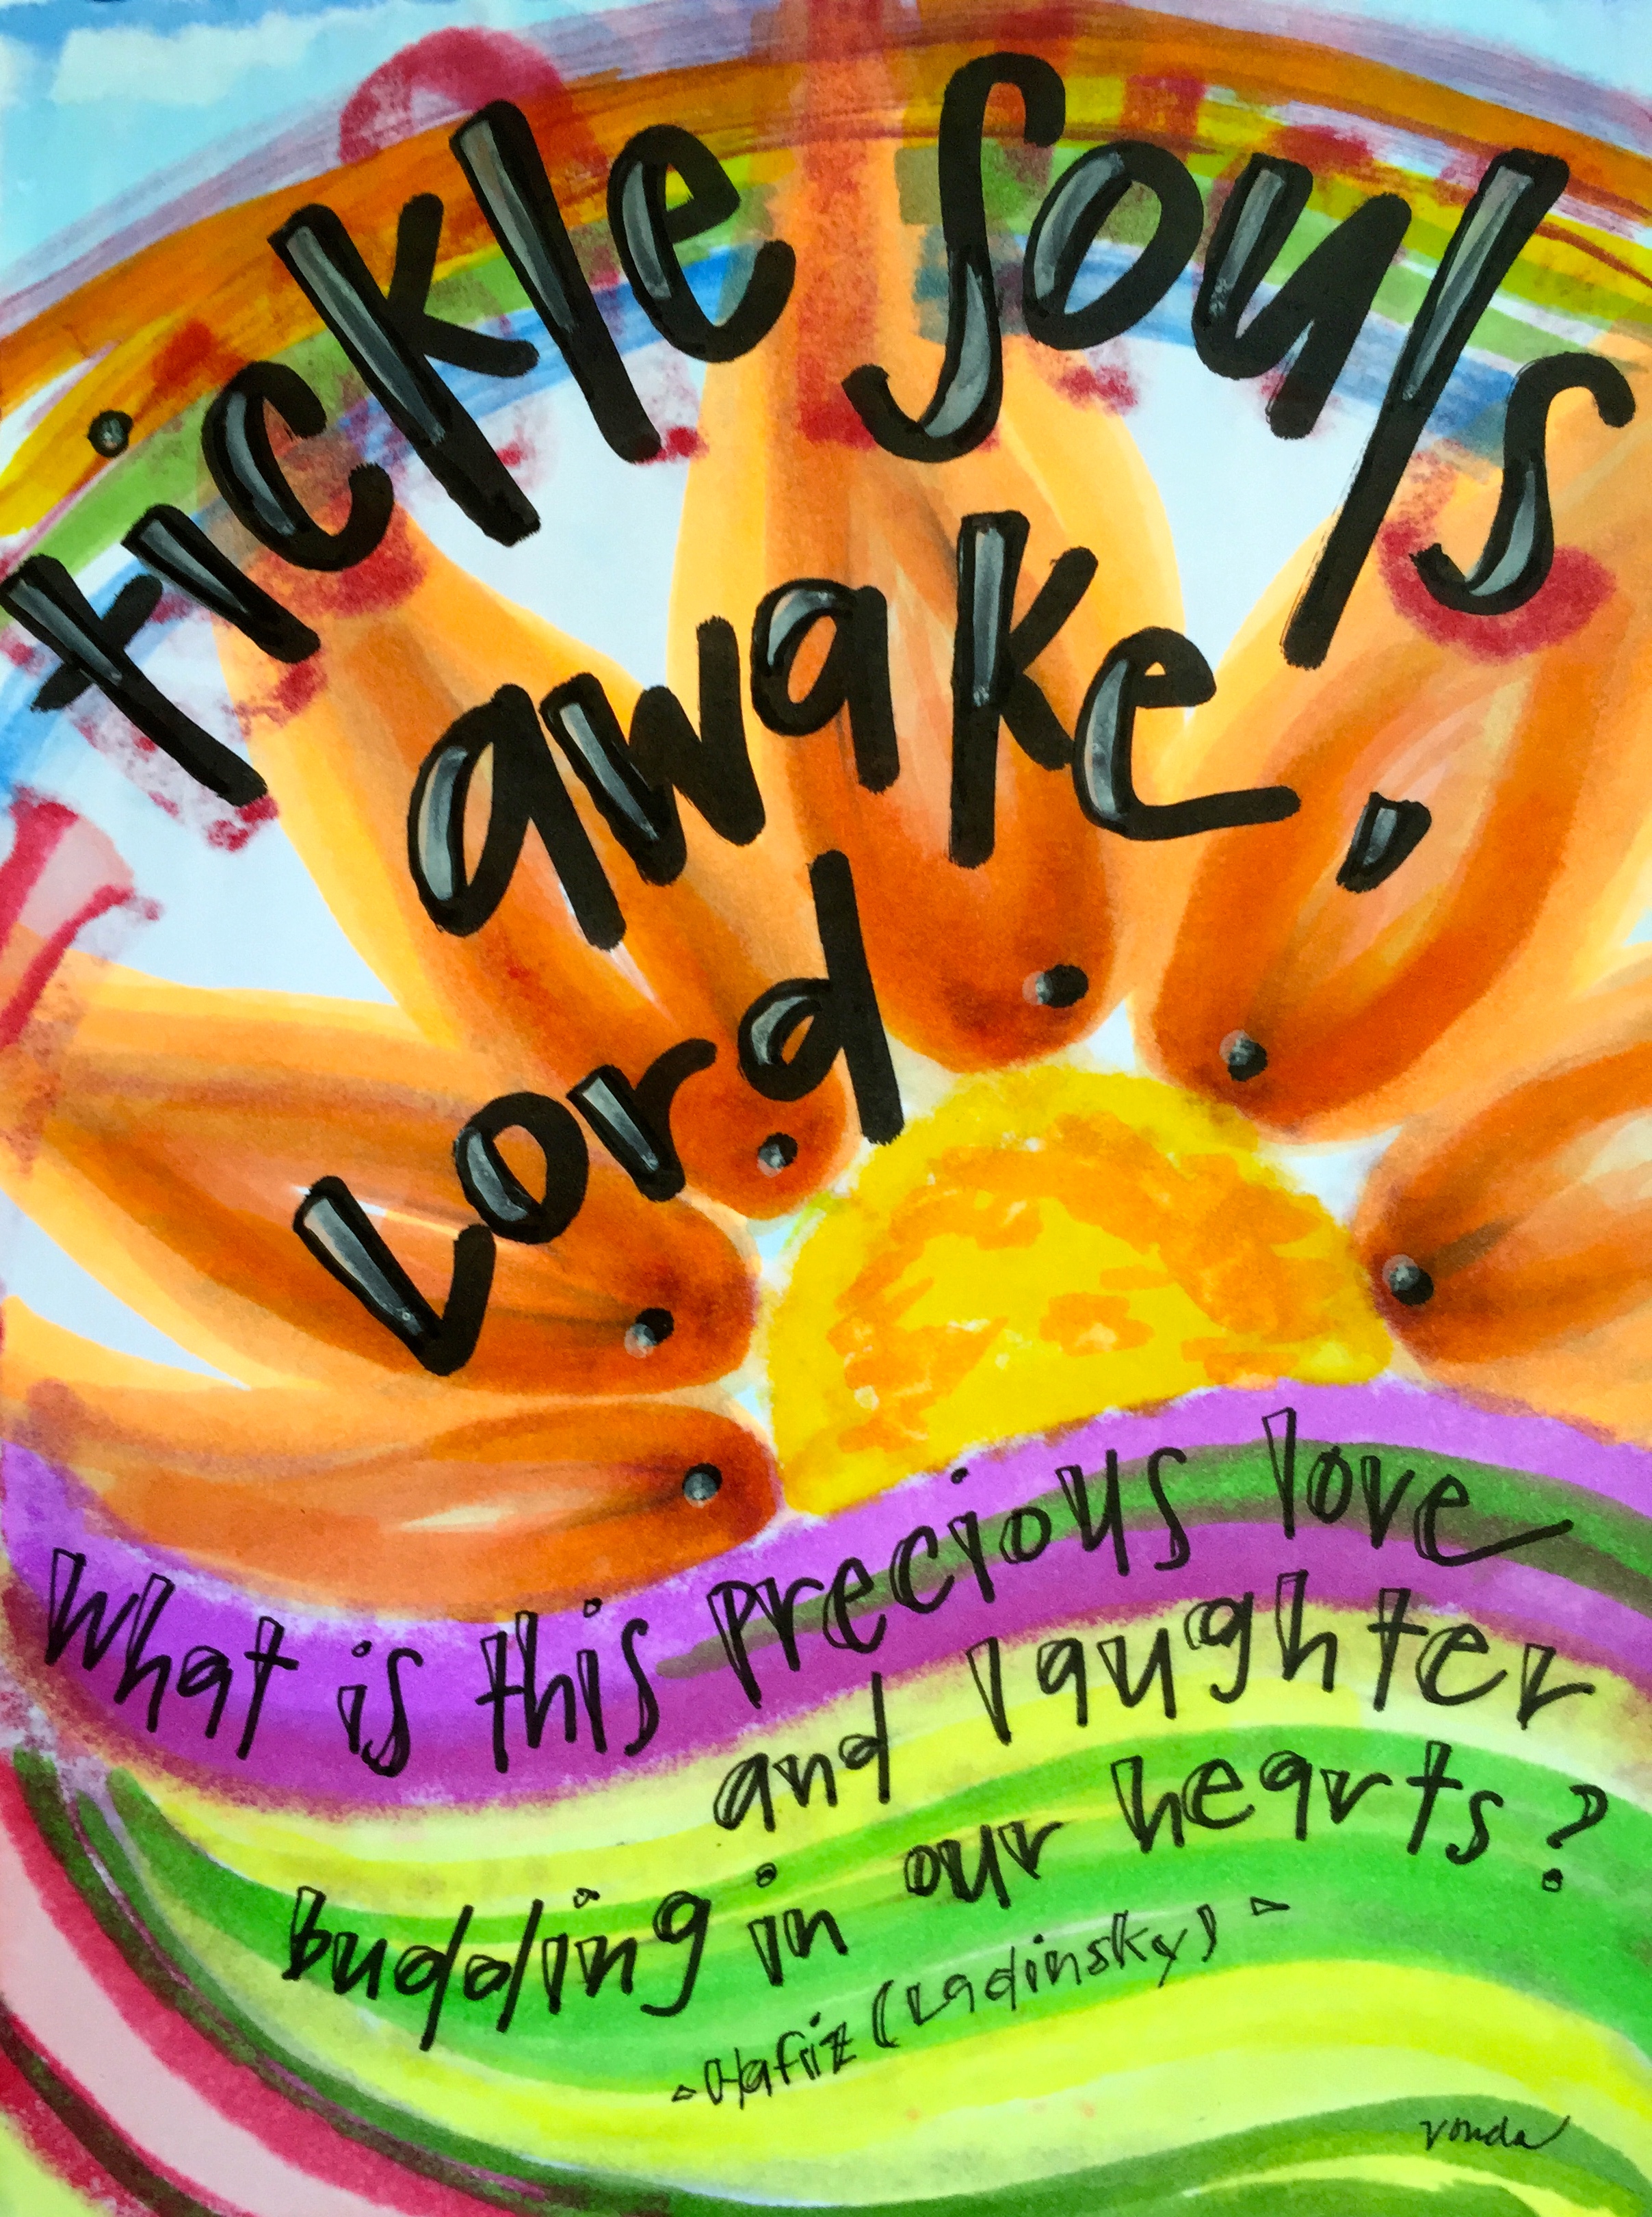 tickle souls
awake,
Lord
What is this precious love
and laughter
budding in our hearts?
-Hafiz (Ladinsky)-
vonda